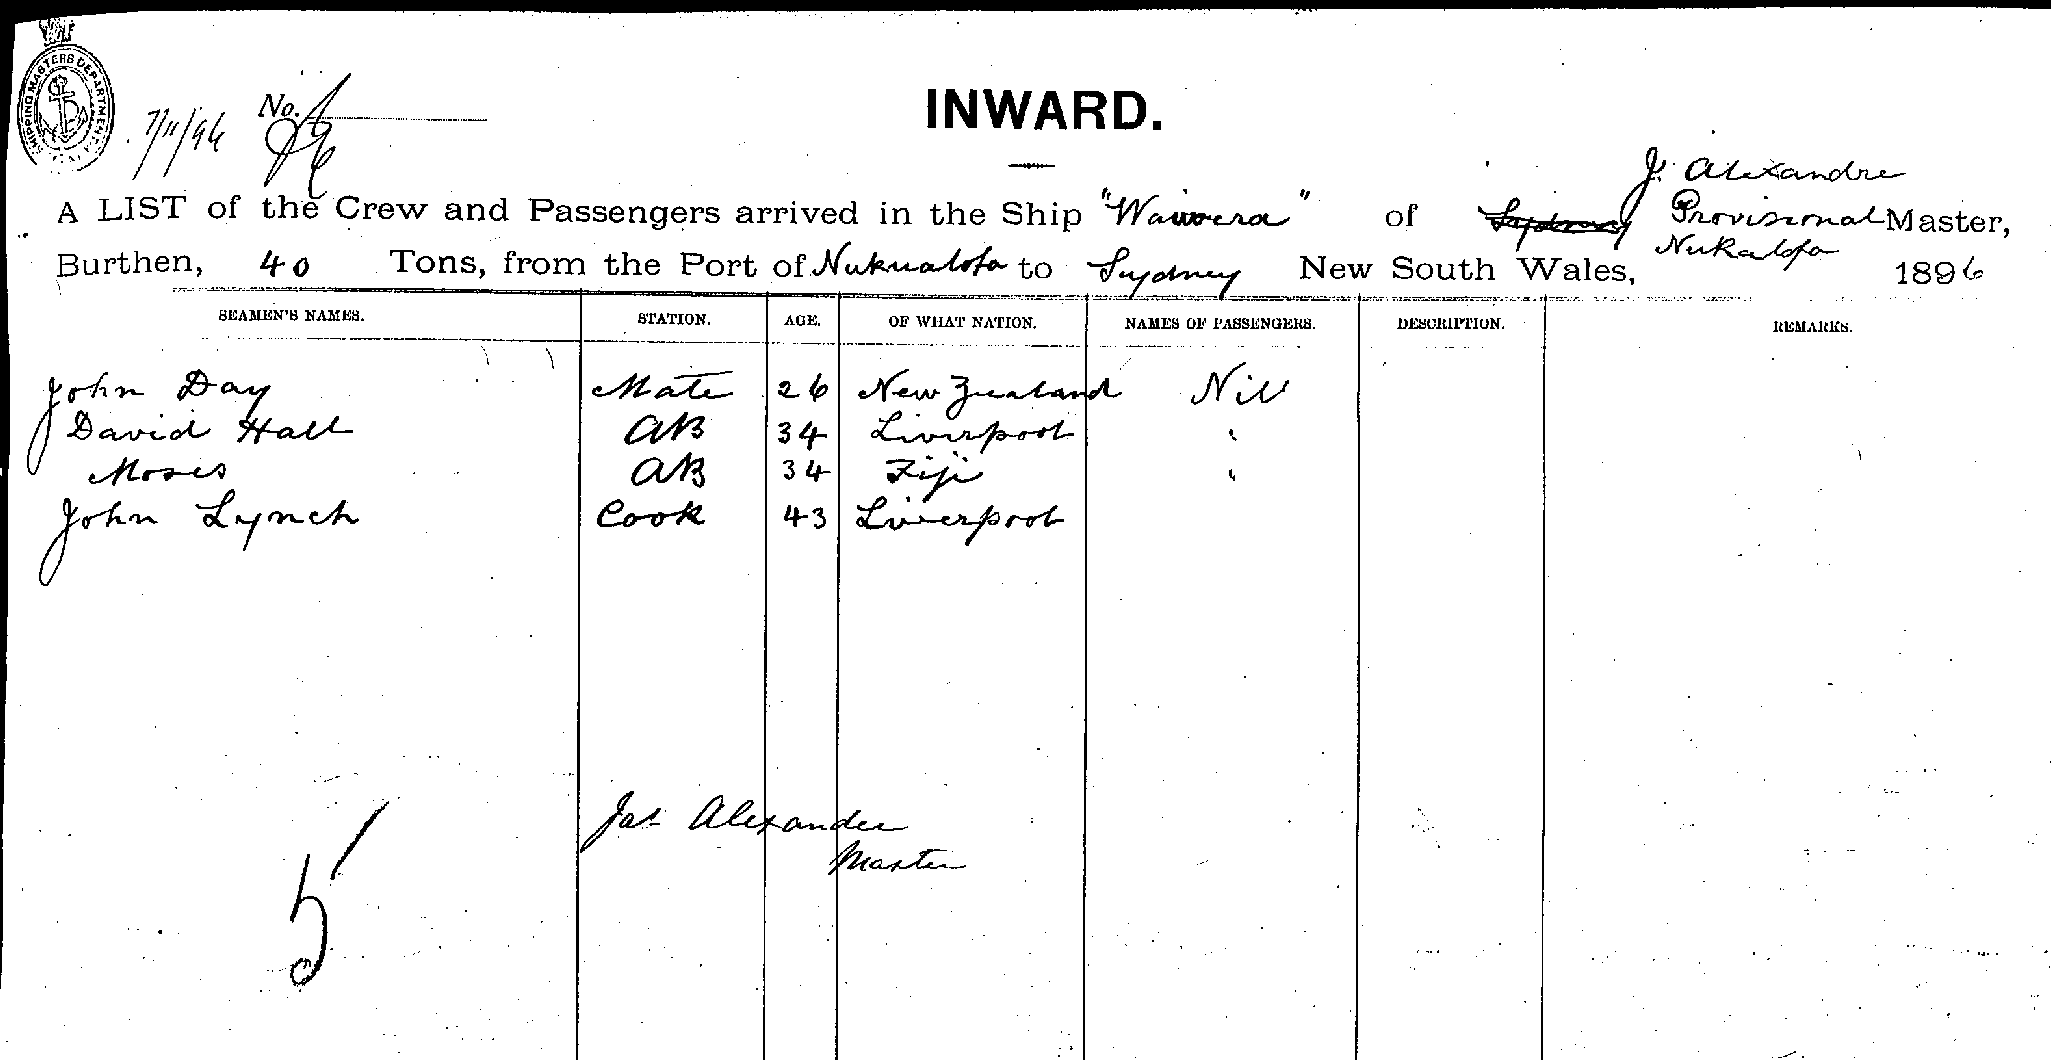 SHIPPING MASTERS DEPARTMENT
7/11/96 No.
INWARD.
J. Alexandre
A LIST of the Crew and Passengers arrived in the Ship "Waiwera" of Sydney Provisional Master,
Nukalofa
Burthen, 40 Tons, from the Port of Nukualofa to Sydney New South Wales, 1896
SEAMEN'S NAMES. STATION. AGE. OF WHAT NATION. NAMES OF PASSENGERS. DESCRIPTION. REMARKS.
John Day Mate 26 New Zealand Nil
David Hall AB 34 Liverpool "
Moses AB 34 Fiji "
John Lynch Cook 43 Liverpool
Jas Alexander
Master
5